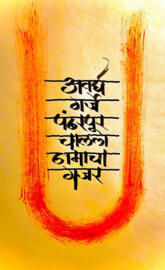 अवघे
गर्जे
पंढरपूर
चालला
नामाचा
गजर